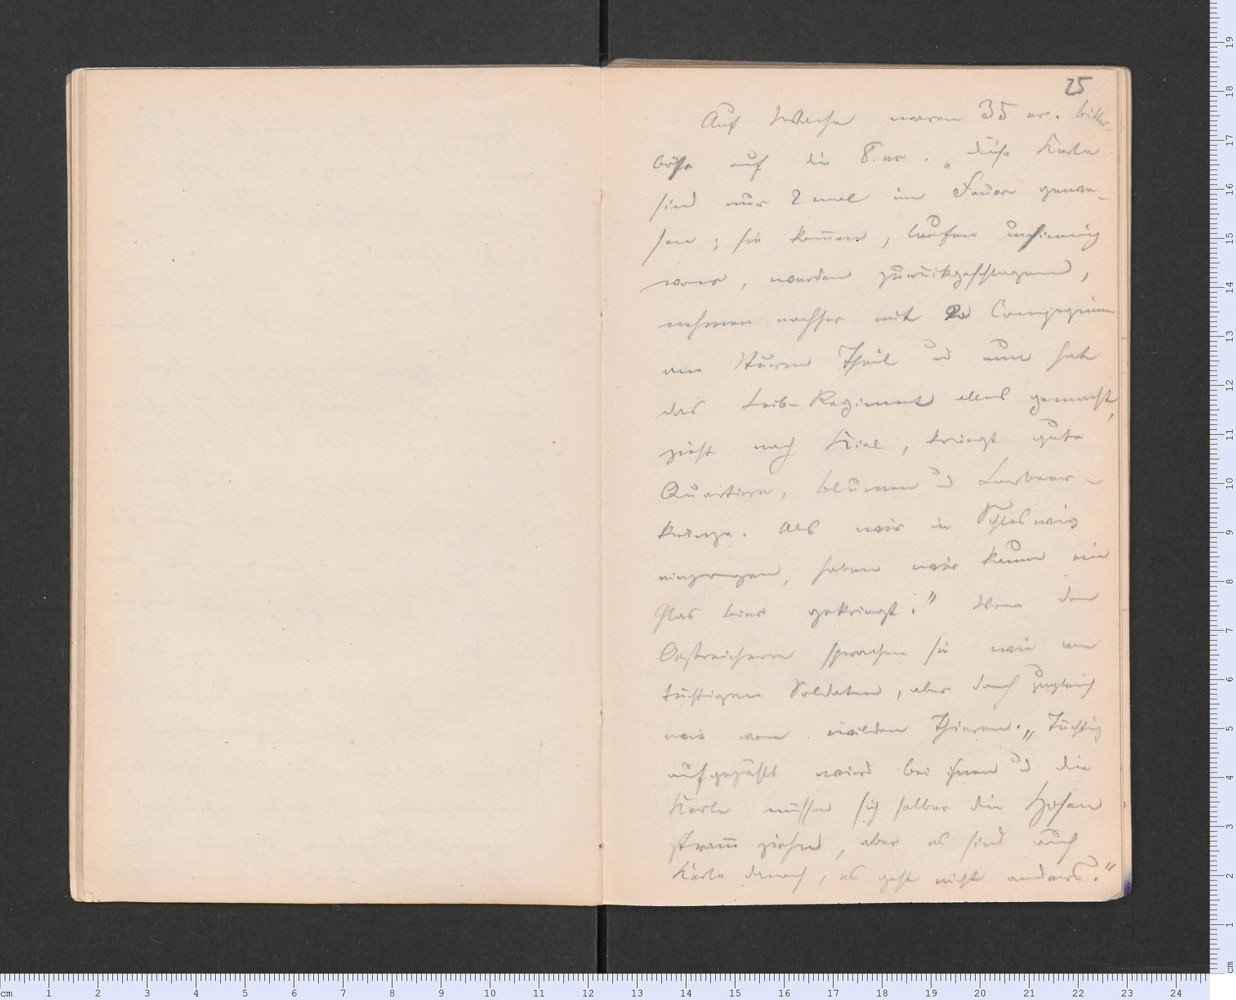 25
Auf Wache waren 35 er. bitter-
böse auf die 8. er. „diese Kerle
sind nur 2 mal im Feuer gewe-
sen; sie kom̅en, laufen unsinnig
vor, werden zurückgeschlagen,
nehmen nachher mit 2 Compagnien
am Sturm Theil u nun hat
das Leib-Regiment alles gemacht,
zieht nach Kiel, kriegt gute
Quartiere, Blumen u Lorbeer-
kränze. Als wir in Schleswig
einzogen, haben wir kaum ein
Glas Bier gekriegt.” Von den
Oestreichern sprachen sie wie von
tüchtigen Soldaten, aber doch zugleich
wie von wilden Thieren. „Tüchtig
aufgezählt wird bei ihnen u die
Kerle müssen sich selber die Hosen
stram̅ ziehen, aber es sind auch
Kerle danach, es geht nicht anders.”